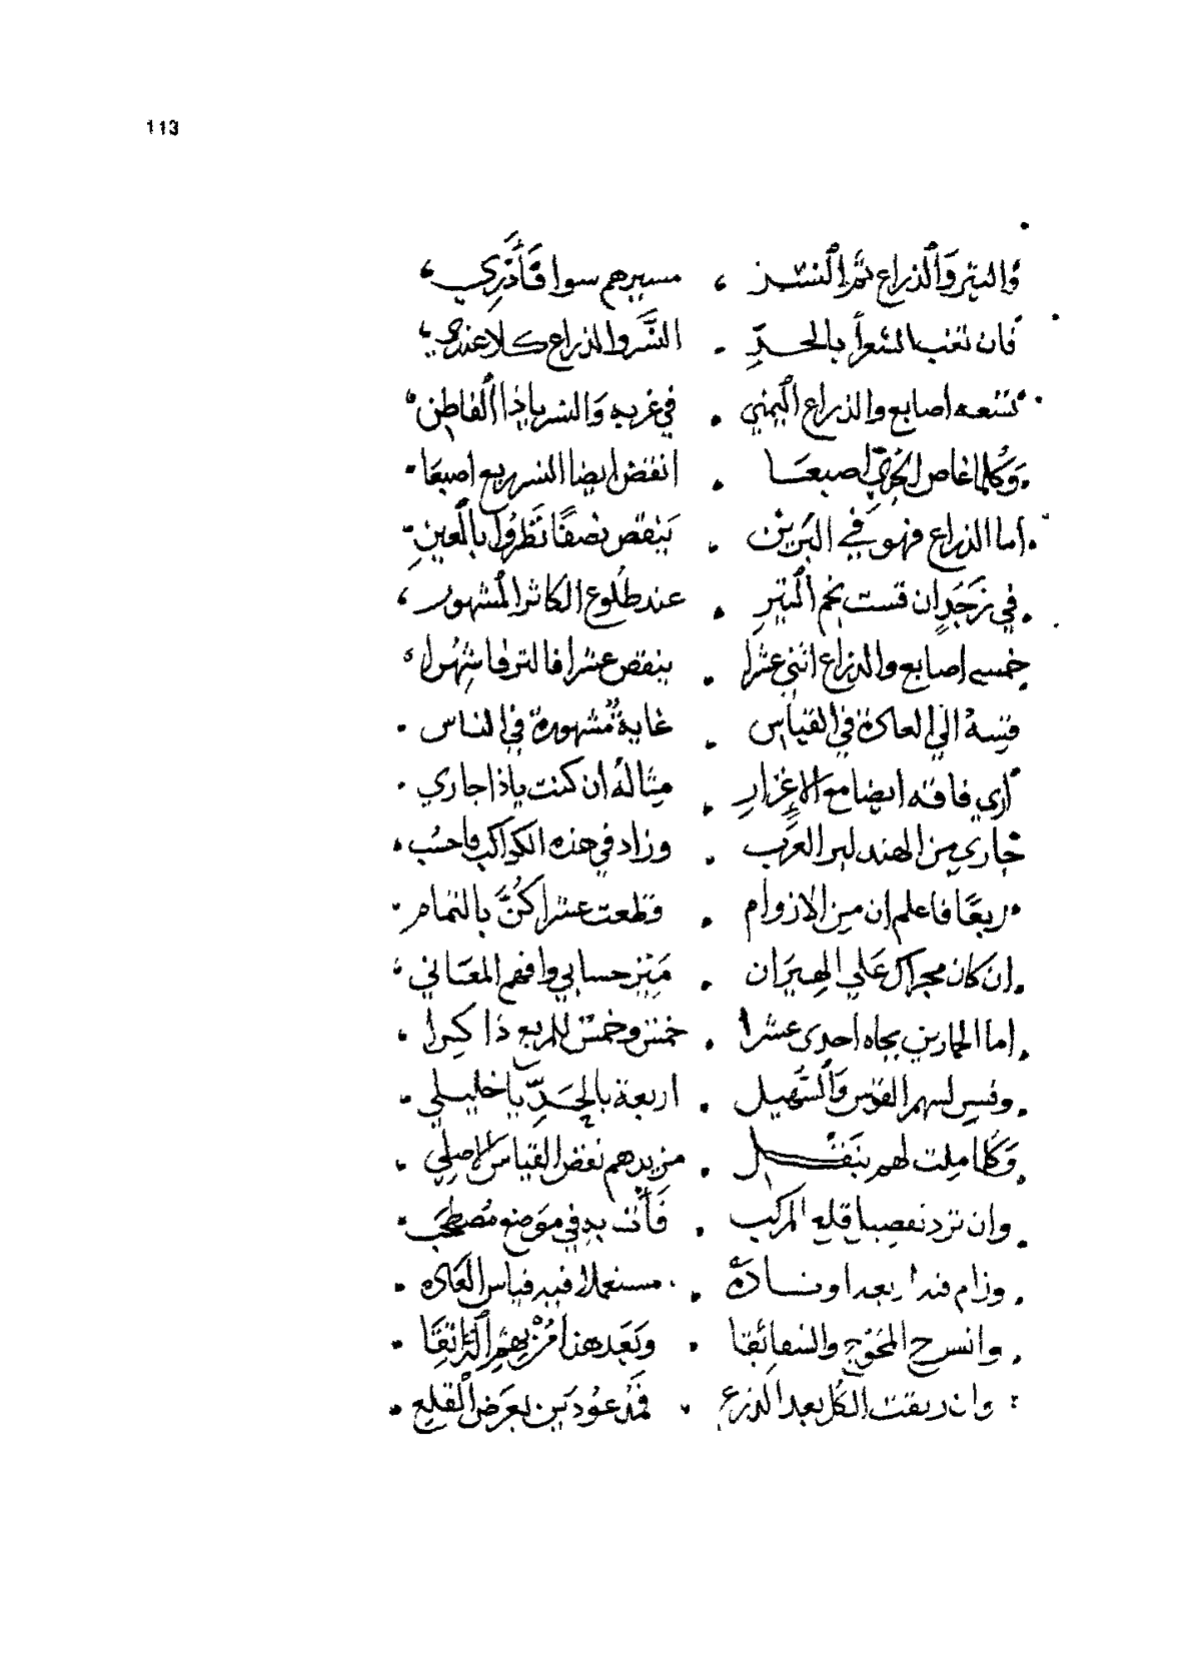 113
والتير والذراع ثم النسر ، مسيرهم سوا فادري ،
فان تغب الشعرا بالحد . النسر والذراع كلا عندي ،
تسعه اصابع والذراع اليمني . في غربه والنسر ياذا الفاطن
وكلما غاص اصبعا . انقض ايضا النسر ربع اصبعا .
اما الذراع فهو في البرين . ينقص نصفا بالعين .
في زجد ان قست نجم التير . عند طلوع المشهور ،
خمسه اصابع والذراع اثني عشرا . ينقص عشرا
قسه الي العادة في القياس . غاية مشهورة في الناس .
اري فاقه ايضا مع الاغزار . مثاله ان كنت ياذا جاري .
جاري من الهند لبر العرب . وزاد في هذه الكواكب فاحسب .
ربعا فاعلم ان من الازوام . قطعت عشرا بالتمام .
ان كان مجراك علي الهيران . ميز حسابي وافهم المعاني ،
اما الحمارين بجاه احدى عشرا . خمس وخمس للربع ذاكرا .
وقس لسهم القوس والسهيل . اربعة بالجد يا خليلي .
وكلما ملت لهم بنقل . مزيدهم نقض القياس الاصلي .
وان ترد قلع المركب . في موضع .
وزام بعدا . مستعملا فيه قياس العاده .
وانسرح المخرج والسفائقا . وبعد هذا
وان بقت الكل بعد الذرع . فمد عودين بعرض القلع .